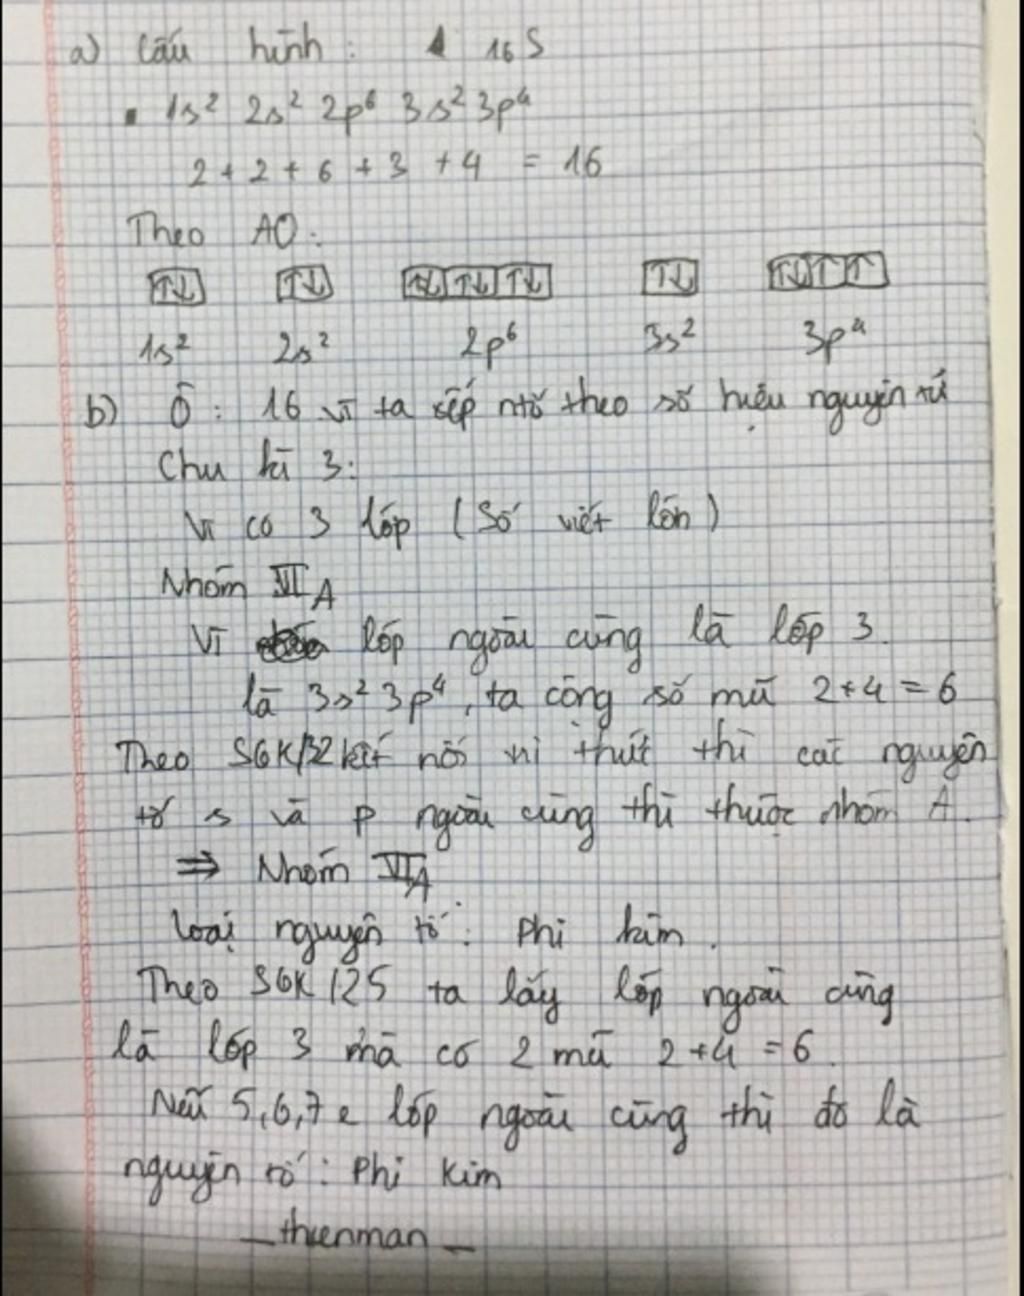 a) Cấu hình: 16S
1s² 2s² 2p⁶ 3s² 3p⁴
2 + 2 + 6 + 3 + 4 = 16
Theo AO:
↑↓ ↑↓ ↑↓ ↑↓ ↑↓ ↑↓ ↑↓ ↑ ↑
1s² 2s² 2p⁶ 3s² 3p⁴
b) Ô: 16 vì ta sếp ntố theo số hiệu nguyên tử
Chu kì 3:
Vì có 3 lớp (Số viết lớn)
Nhóm VIA
Vì lớp ngoài cùng là lớp 3.
là 3s² 3p⁴, ta cộng số mũ 2+4=6
Theo SGK/32 kết nối tri thức thì các nguyên
tố s và p ngoài cùng thì thuộc nhóm A.
⇒ Nhóm VIA
Loại nguyên tố: Phi kim.
Theo SGK/25 ta lấy lớp ngoài cùng
là lớp 3 mà có 2 mũ 2+4=6.
Nếu 5,6,7e lớp ngoài cùng thì đó là
nguyên tố: Phi kim
_thienman_